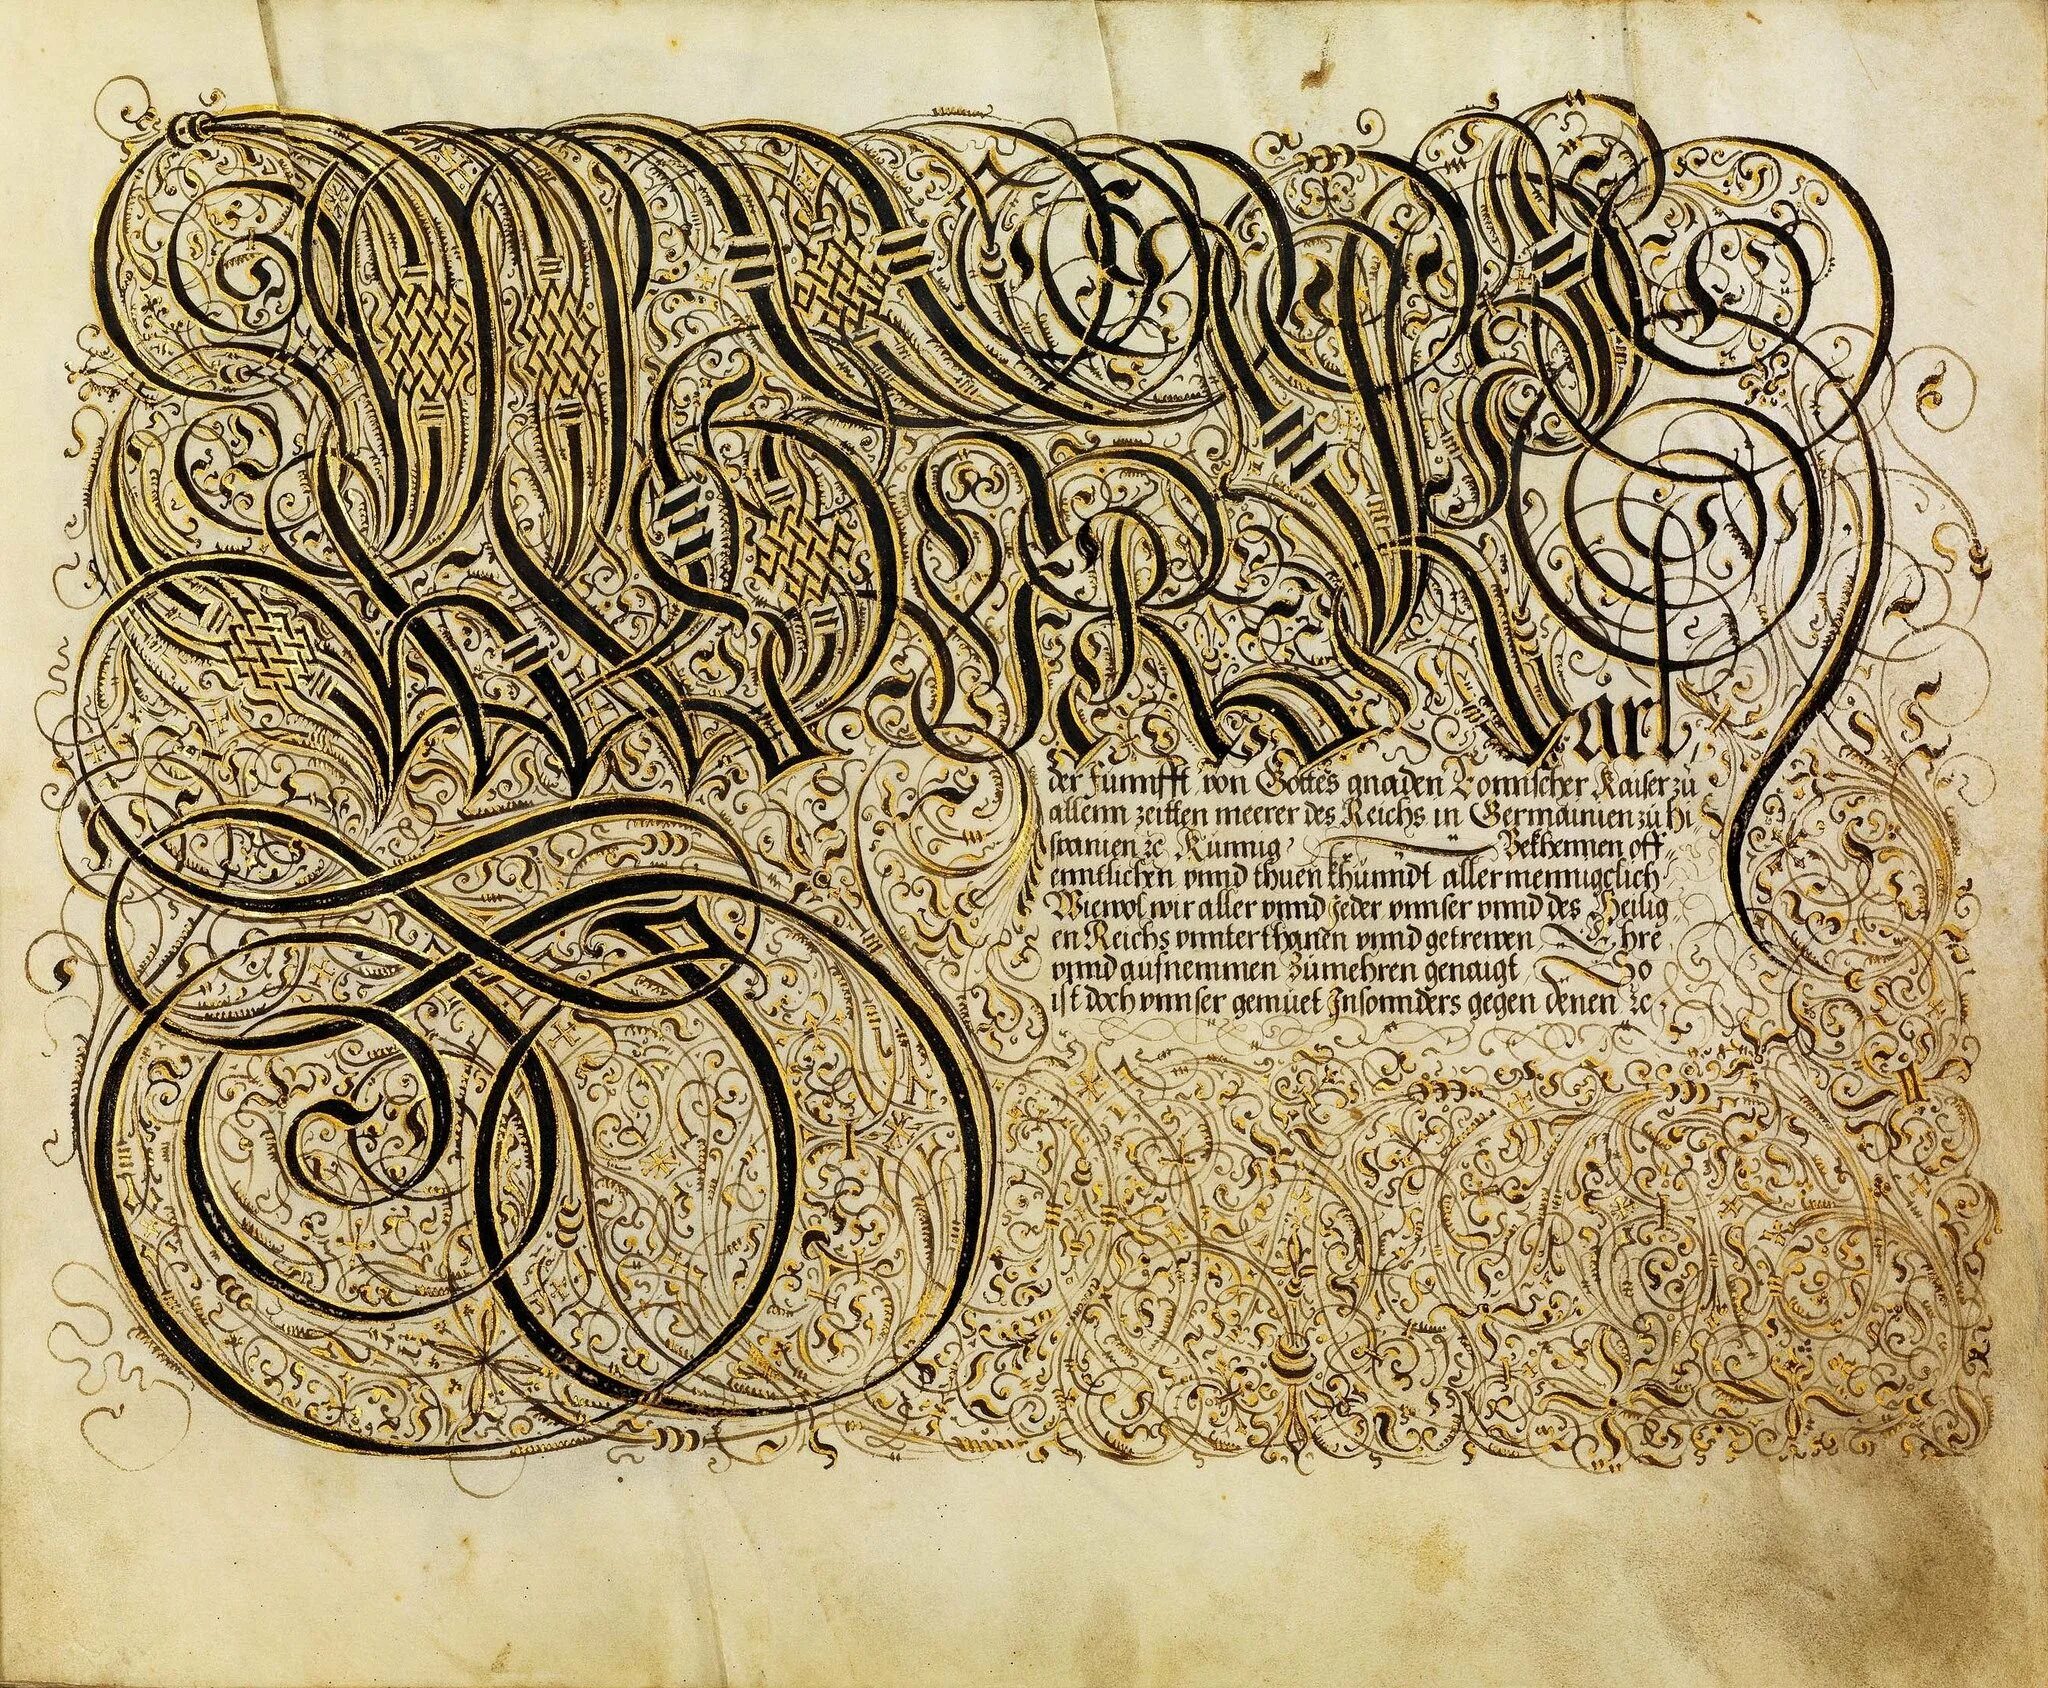 Wir Karl
der Funnfft von Gottes gnaden Romischer Kaiser zu
allenn zeitten meerer des Reichs in Germainien zu hi-
spanien ꝛc Kunnig Bekhennen off-
enntlichen vnnd thuen khundt allermennigclich
Wiewol wir aller vnnd jeder vnnser vnnd des Heilig-
en Reichs vnnterthanen vnnd getrewen Ehre
vnnd aufnemmen zu mehren genaigt So
ist doch vnnser gemuet Insonnders gegen denen ꝛc